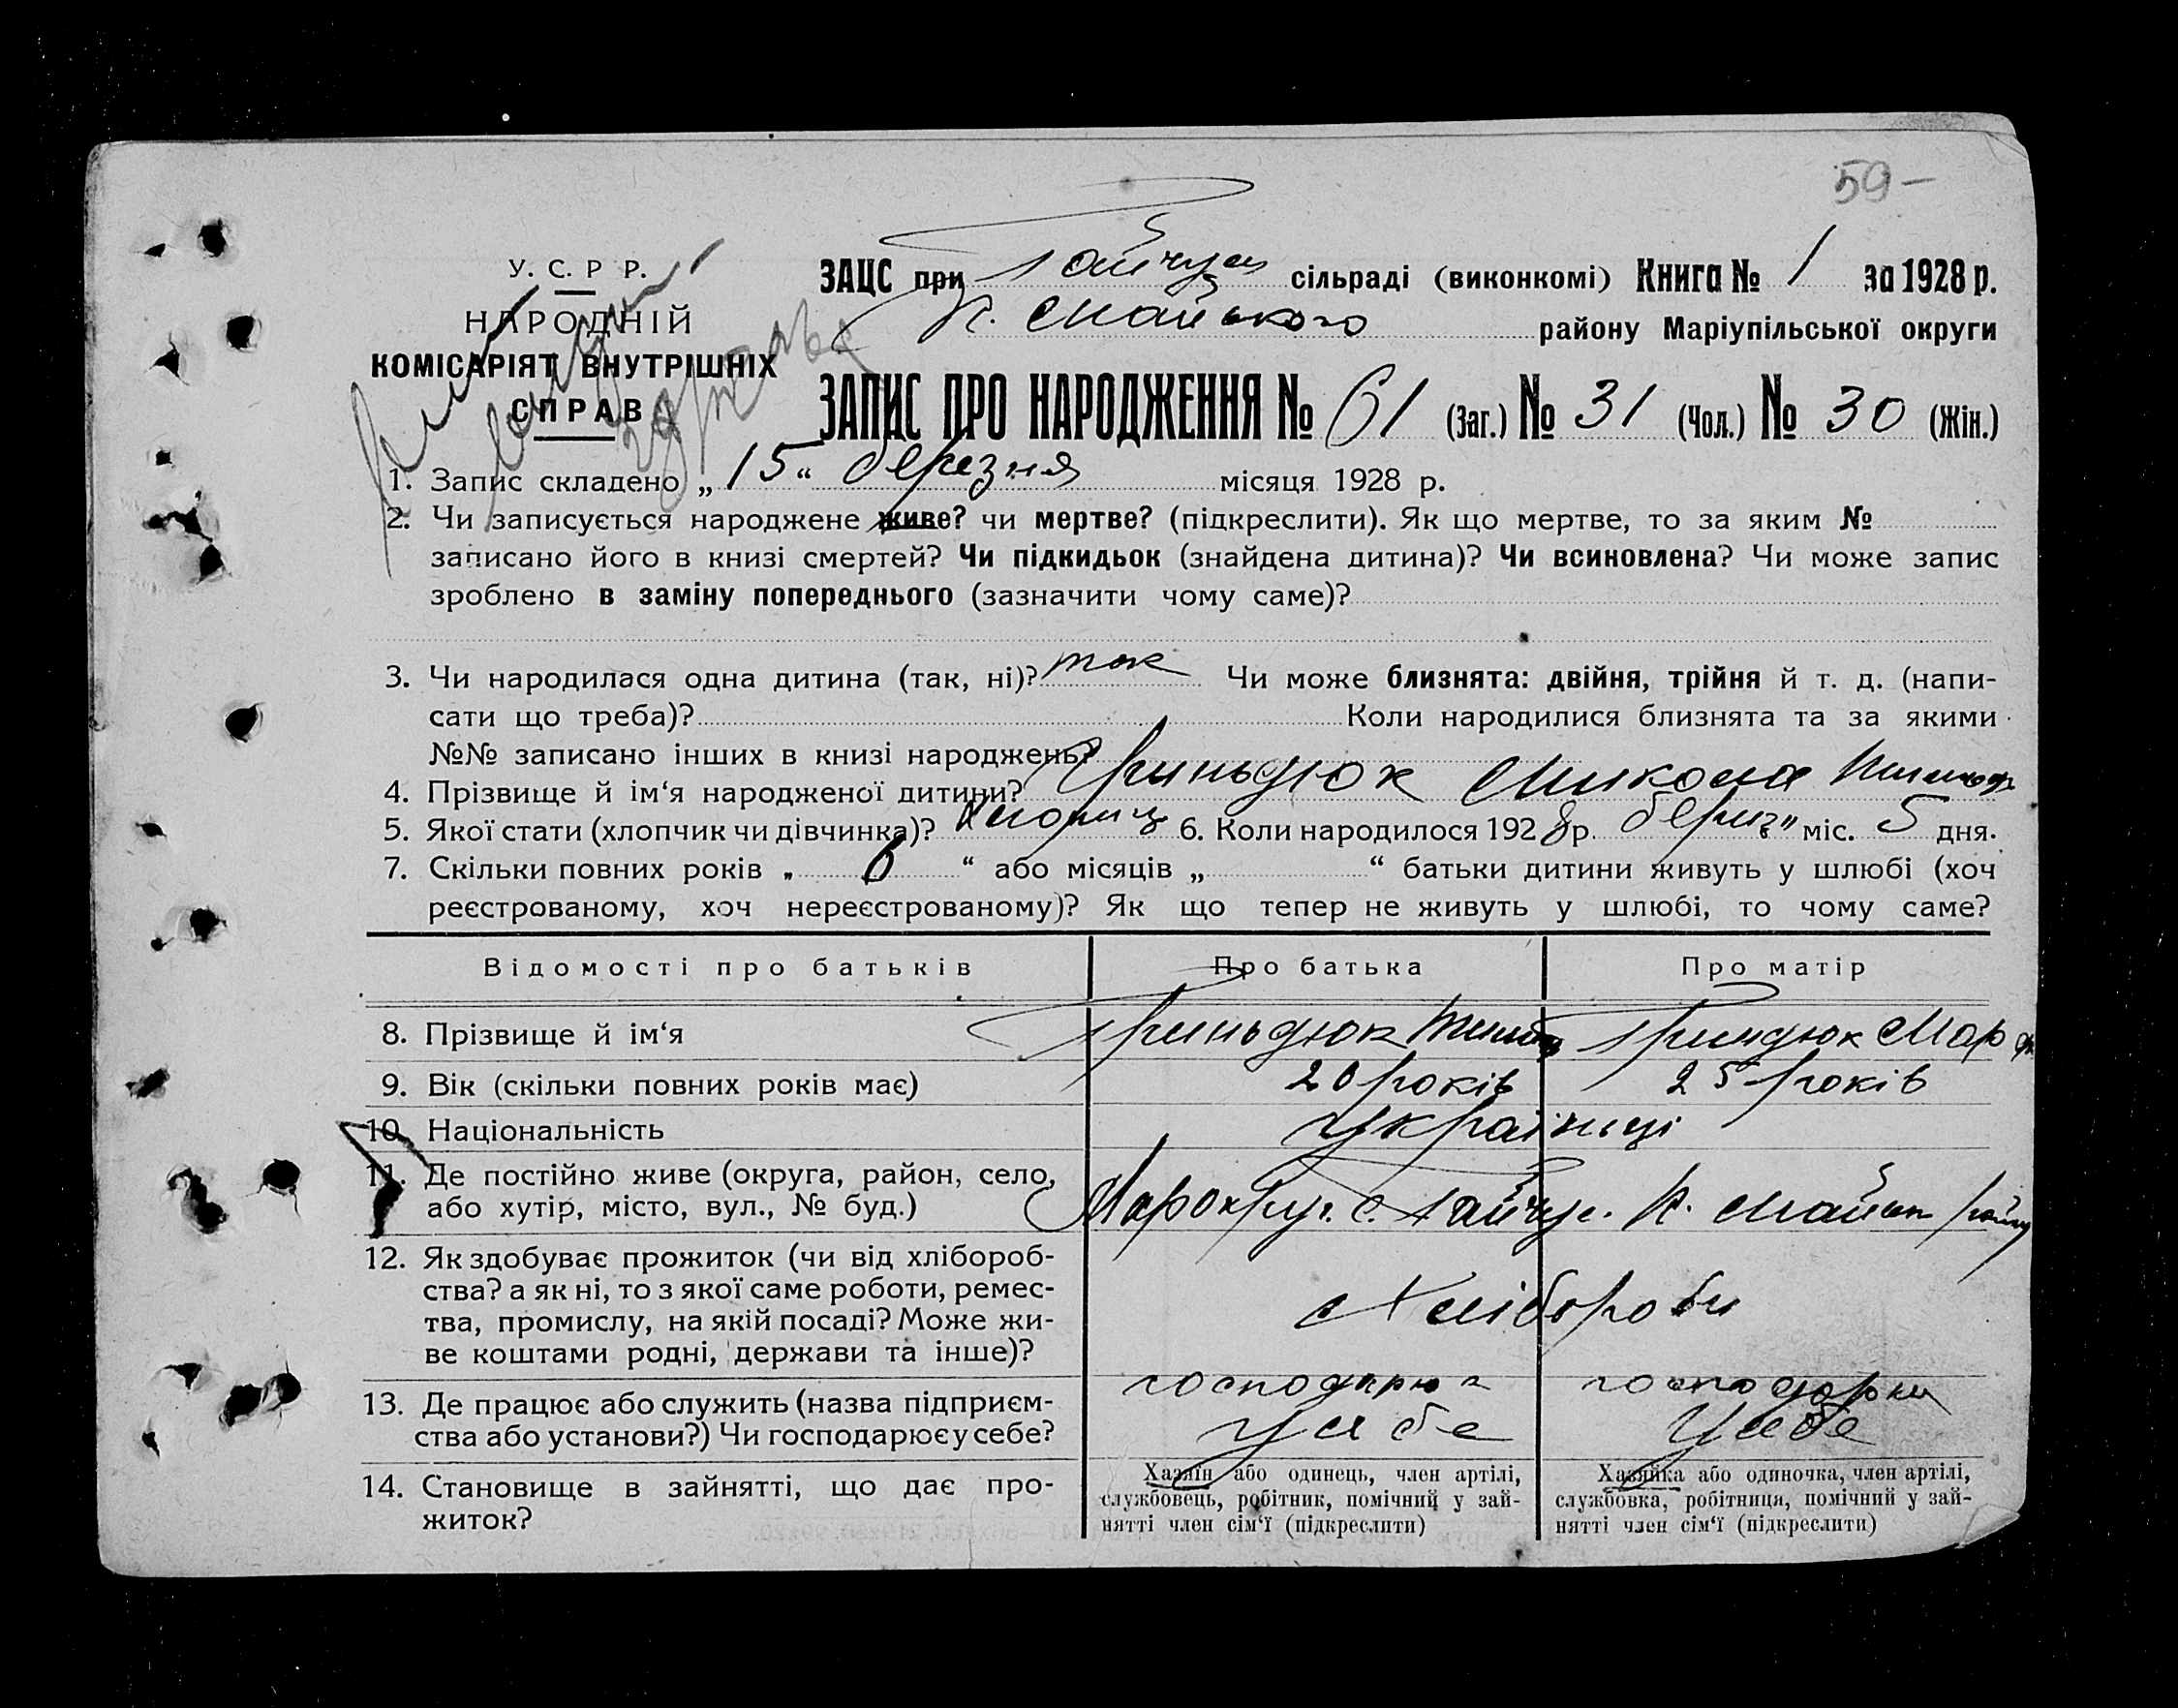 59 –
У. С. Р Р.
НАРОДНІЙ
КОМІСАРІЯТ ВНУТРІШНІХ
СПРАВ
ЗАЦС при Гайчул сільраді (виконкомі) Книга № 1 за 1928 р.
К. Майського району Маріупільської округи
ЗАПИС ПРО НАРОДЖЕННЯ № 61 (Заг.) № 31 (Чол.) № 30 (Жін.)
1. Запис складено „ 15 “ березня місяця 1928 р.
2. Чи записується народжене живе? чи мертве? (підкреслити). Як що мертве, то за яким №
записано його в книзі смертей? Чи підкидьок (знайдена дитина)? Чи всиновлена? Чи може запис
зроблено в заміну попереднього (зазначити чому саме)?
3. Чи народилася одна дитина (так, ні)? так Чи може близнята: двійня, трійня й т. д. (напи-
сати що треба)? Коли народилися близнята та за якими
№№ записано інших в книзі народжень?
4. Прізвище й ім‘я народженої дитини? Гриньдюк Микола
5. Якої стати (хлопчик чи дівчинка)? 6. Коли народилося 1928 р. міс. 5 дня.
7. Скільки повних років „ “ або місяців „ “ батьки дитини живуть у шлюбі (хоч
реєстрованому, хоч нереєстрованому)? Як що тепер не живуть у шлюбі, то чому саме?
Відомості про батьків Про батька Про матір
8. Прізвище й ім‘я Гриньдюк Гриндюк
9. Вік (скільки повних років має) років 25 років
10. Національність українці
11. Де постійно живе (округа, район, село,
або хутір, місто, вул., № буд.) Марокруг. с. Гайчул. К.
12. Як здобуває прожиток (чи від хлібороб-
ства? а як ні, то з якої саме роботи, ремес-
тва, промислу, на якій посаді? Може жи-
ве коштами родні, держави та інше)?
Хлібороби
13. Де працює або служить (назва підприєм-
ства або установи?) Чи господарює у себе?
у себе у себе
14. Становище в зайнятті, що дає про-
житок?
Хазяїн або одинець, член артілі,
службовець, робітник, помічний у зай-
нятті член сім‘ї (підкреслити)
Хазяйка або одиночка, член артілі,
службовка, робітниця, помічний у зай-
нятті член сім‘ї (підкреслити)